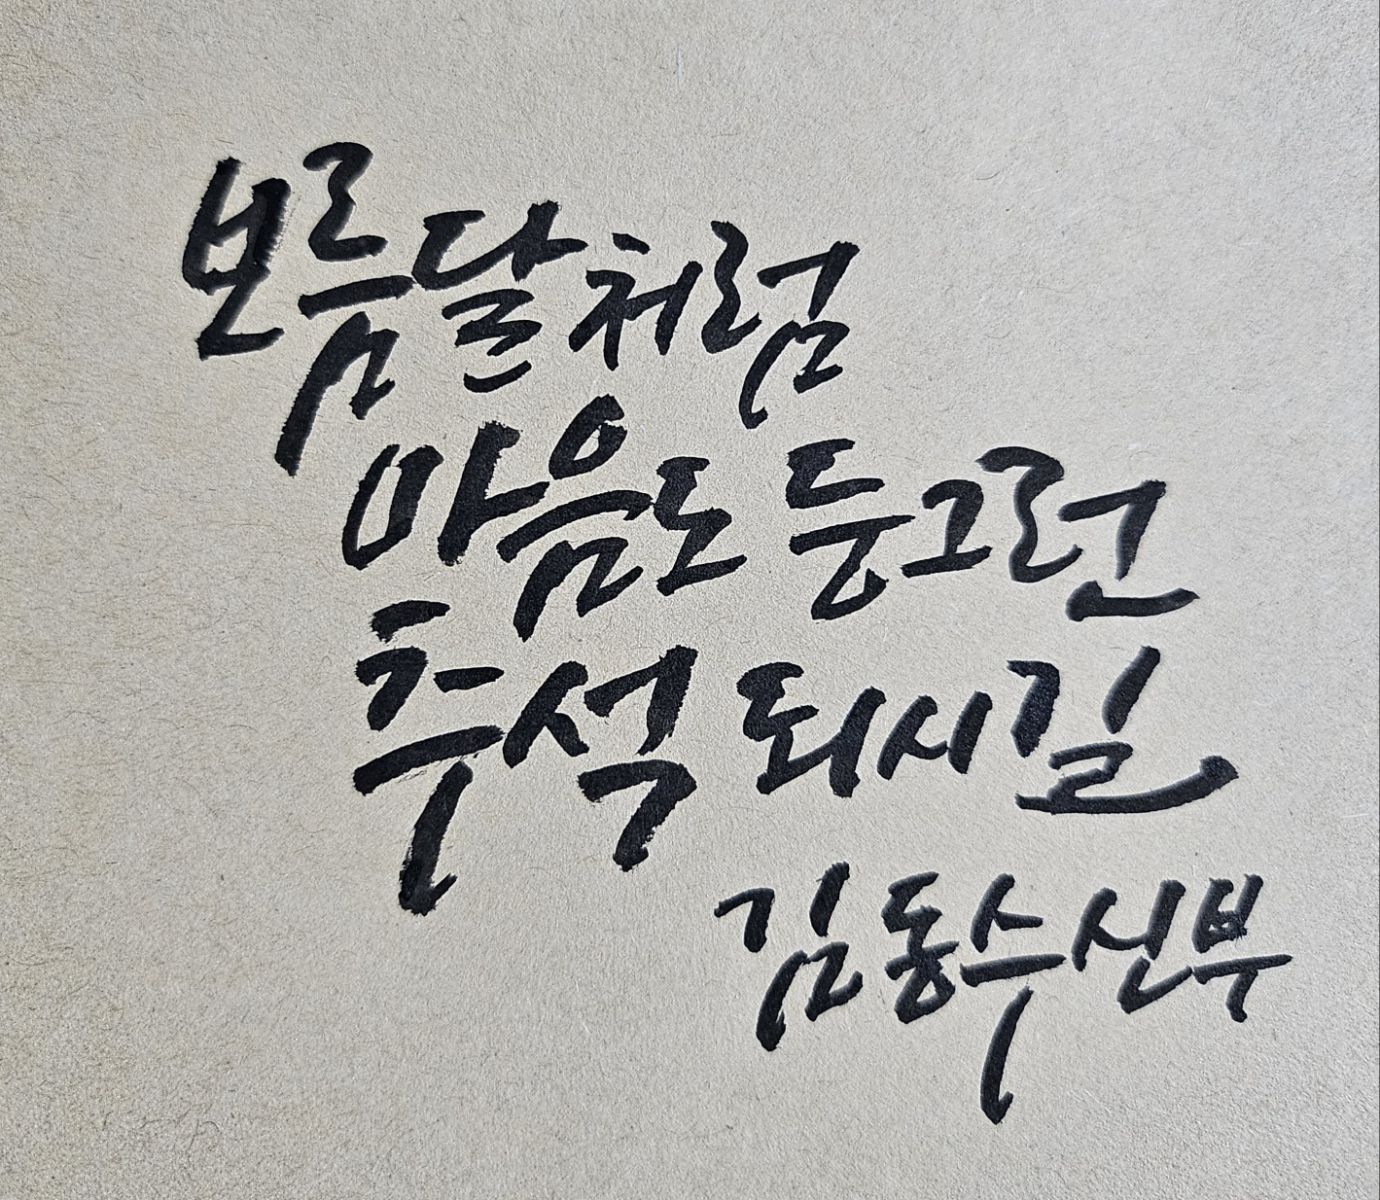 보름달처럼
마음도 둥그런
추석 되시길
김동수신부